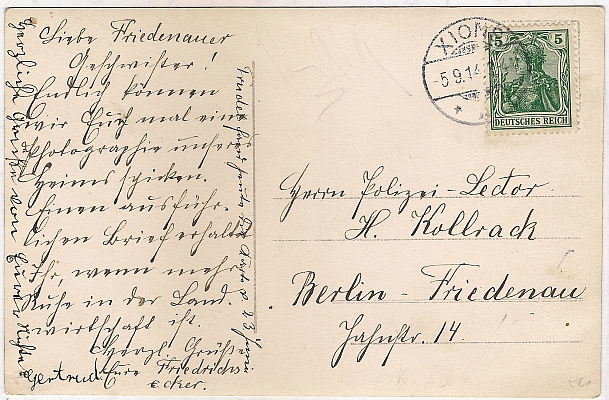 Liebe Friedenauer
Geschwister!
Endlich können
wir Euch mal eine
Photographie unseres
Heims spicken.
Einen ausführ-
lichen Brief erhaltet
Ihr, wenn mehr
Ruhe in der Land-
wirtschaft ist.
Herzl. Grüße
Eure Friedrichs-
ecker.
Herzliche Grüße von Eurer
Gertrud
XIONS
-5.9.14
5 5
DEUTSCHES REICH
Herrn Polizei-Lector
H. Kollrack
Berlin-Friedenau
Jahnstr. 14